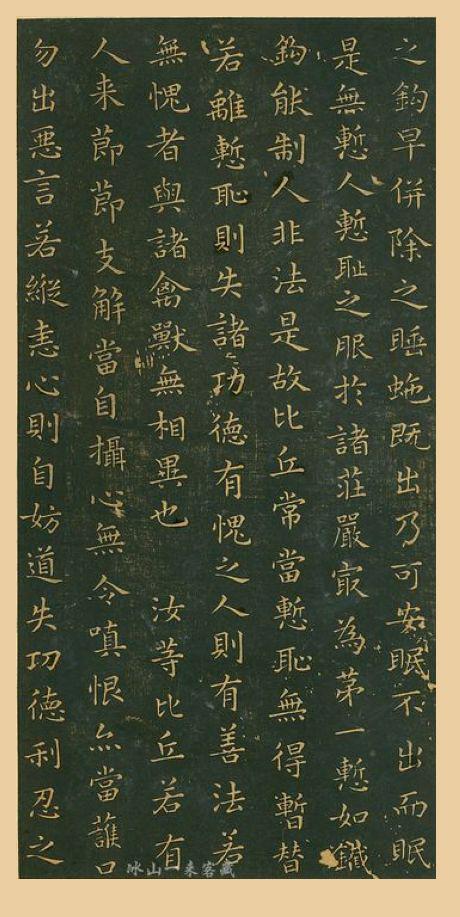 之鈎早併除之睡虵既出乃可安眠不出而眠
是無慙人慙耻之服扵諸莊嚴㝡為苐一慙如鐵
鈎能制人非法是故比丘常當慙恥無得暫替
若離慙恥則失諸功德有愧之人則有善法若
無愧者與諸禽獸無相異也　汝等比丘若有
人来莭莭支解當自攝心無令嗔恨亦當護口
勿出惡言若縱恚心則自妨道失功德利忍之
冰山一来客藏